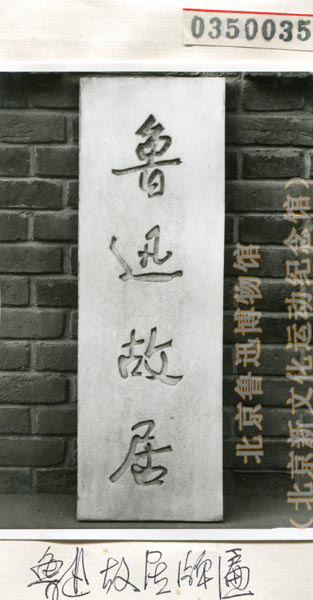 0350035
鲁迅故居
北京鲁迅博物馆
（北京新文化运动纪念馆）
鲁迅故居牌匾